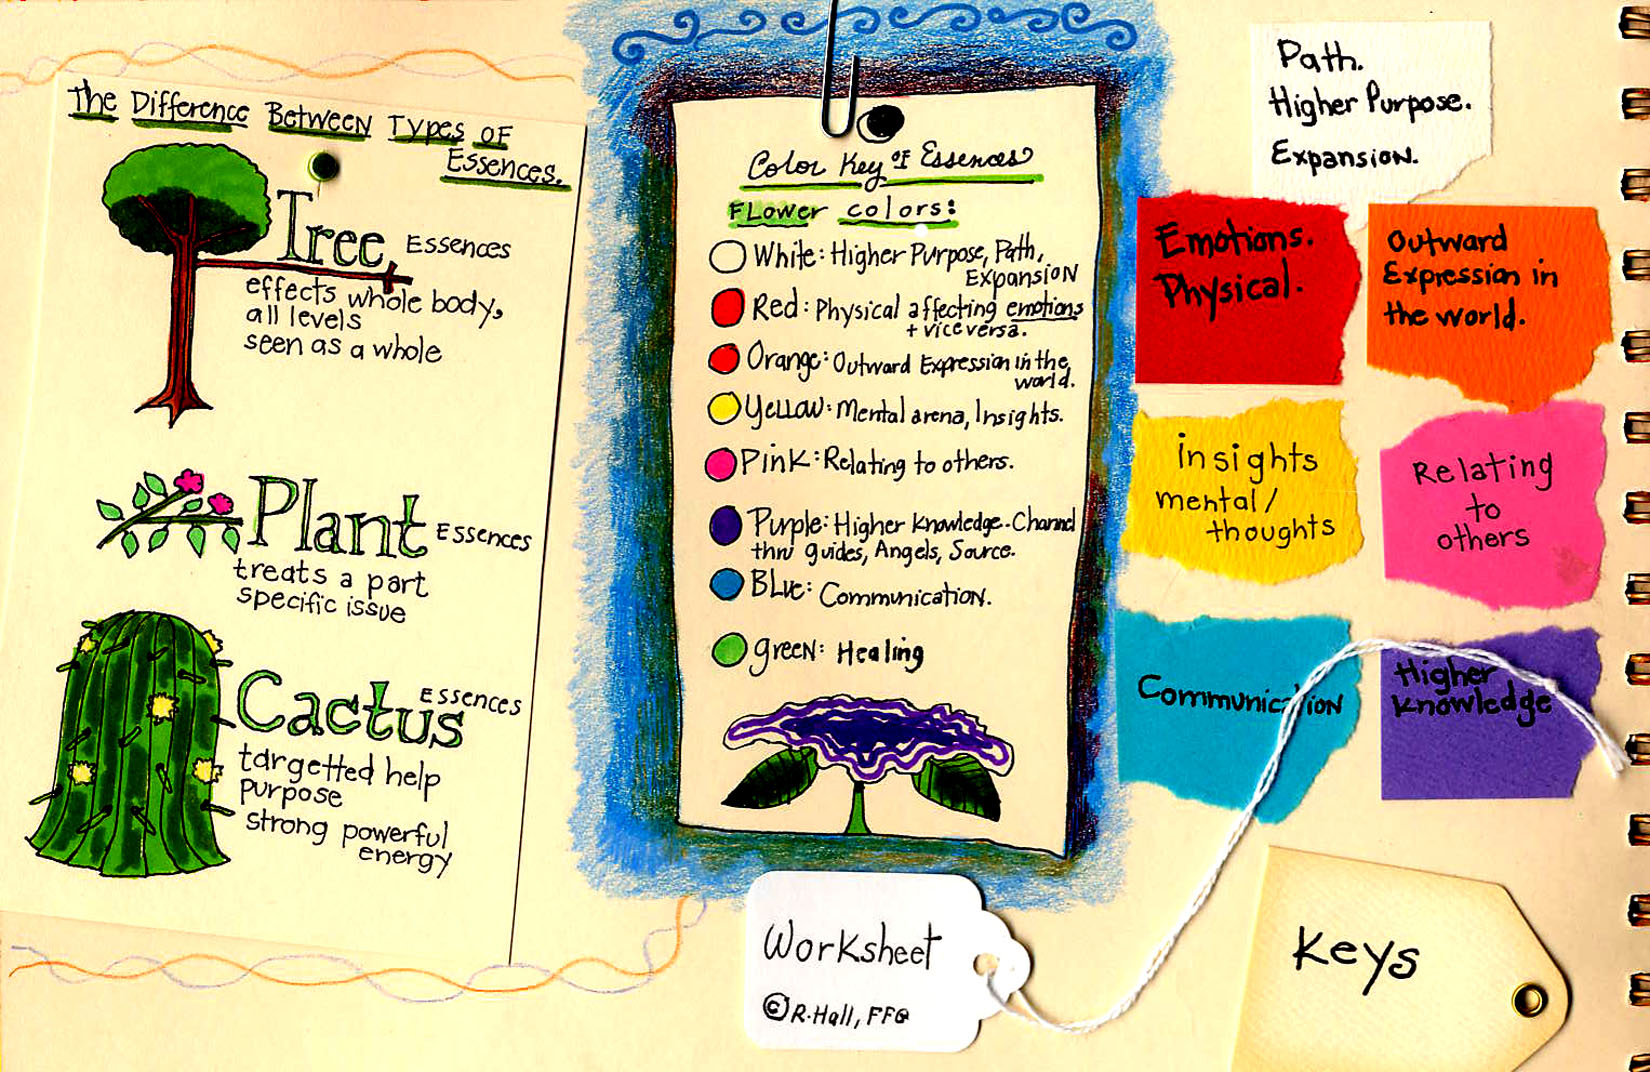 The Difference Between Types of
Essences.
Tree Essences
effects whole body,
all levels
seen as a whole
Plant Essences
treats a part
specific issue
Cactus Essences
targetted help
purpose
strong powerful
energy
Color Key of Essences
Flower colors:
White: Higher Purpose, Path,
Expansion
Red: Physical affecting emotions
+ vice versa.
Orange: Outward Expression in the
world.
Yellow: Mental arena, Insights.
Pink: Relating to others.
Purple: Higher Knowledge-Channel
thru guides, Angels, Source.
Blue: Communication.
green: Healing
Path.
Higher Purpose.
Expansion.
Emotions.
Physical.
Outward
Expression in
the world.
insights
mental/
thoughts
Relating
to
others
Communication
Higher
Knowledge
Worksheet
© R. Hall, FFG
Keys